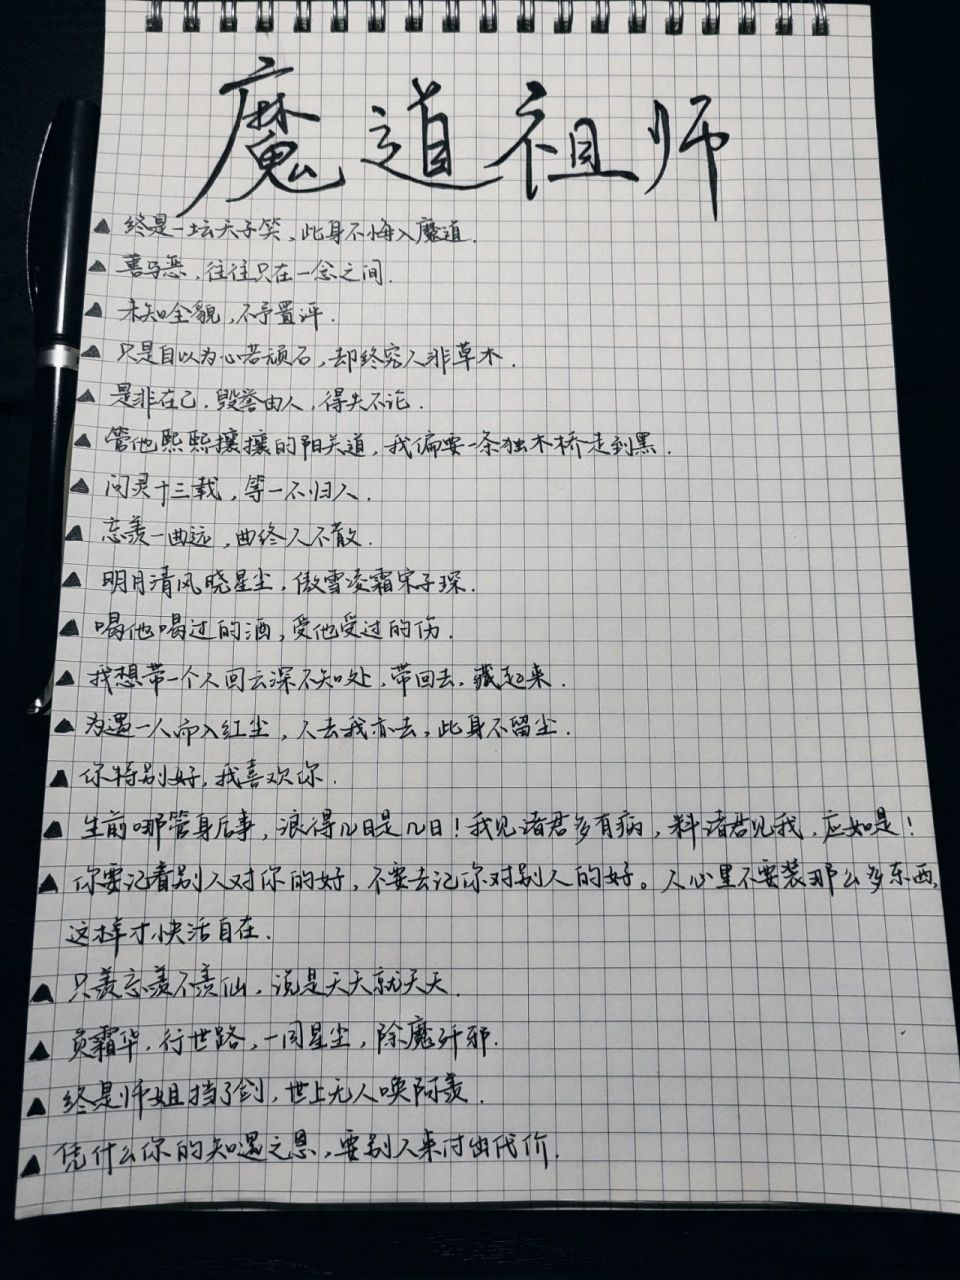 魔道祖师
▲ 终是一坛天子笑、此身不悔入魔道.
▲ 善与恶，往往只在一念之间.
▲ 未知全貌，不予置评.
▲ 只是自以为心若顽石，却终究人非草木.
▲ 是非在己，毁誉由人，得失不论.
▲ 管他熙熙攘攘的阳关道，我偏要一条独木桥走到黑.
▲ 问灵十三载，等一不归人.
▲ 忘羡一曲远，曲终人不散.
▲ 明月清风晓星尘，傲雪凌霜宋子琛.
▲ 喝他喝过的酒，受他受过的伤.
▲ 我想带一个人回云深不知处，带回去，藏起来.
▲ 为遇一人而入红尘，人去我亦去，此身不留尘.
▲ 你特别好，我喜欢你.
▲ 生前哪管身后事，浪得几日是几日！我见诸君多有病，料诸君见我，应如是！
▲ 你要记着别人对你的好，不要去记你对别人的好。人心里不要装那么多东西，
这样才快活自在.
▲ 只羡忘羡不羡仙，说是天天就天天.
▲ 负霜华，行世路，一同星尘，除魔歼邪.
▲ 终是师姐挡了剑，世上无人唤阿羡.
▲ 凭什么你的知遇之恩，要别人来付出代价.